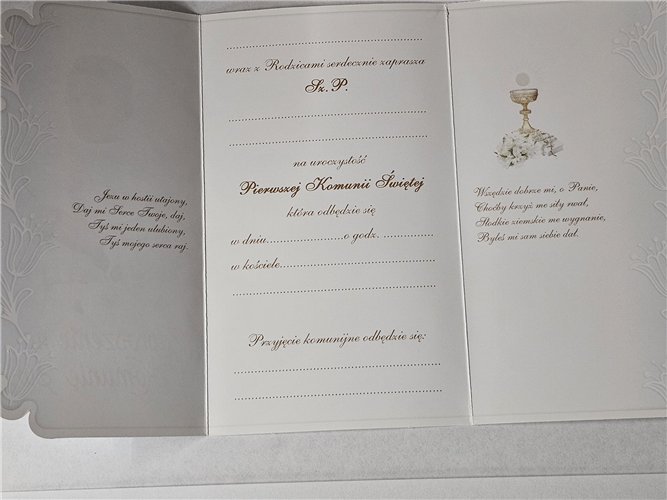 Jezu w hostii utajony,
Daj mi Serce Twoje, daj,
Tyś mi jeden ulubiony,
Tyś mojego serca raj.
..................................................
wraz z Rodzicami serdecznie zaprasza
Sz. P.
..................................................
..................................................
na uroczystość
Pierwszej Komunii Świętej
która odbędzie się
w dniu........................o godz. ................
w kościele........................................
..................................................
Przyjęcie komunijne odbędzie się:
..................................................
..................................................
Wszędzie dobrze mi, o Panie,
Choćby krzyż me siły rwał,
Słodkie ziemskie me wygnanie,
Byłeś mi sam siebie dał.